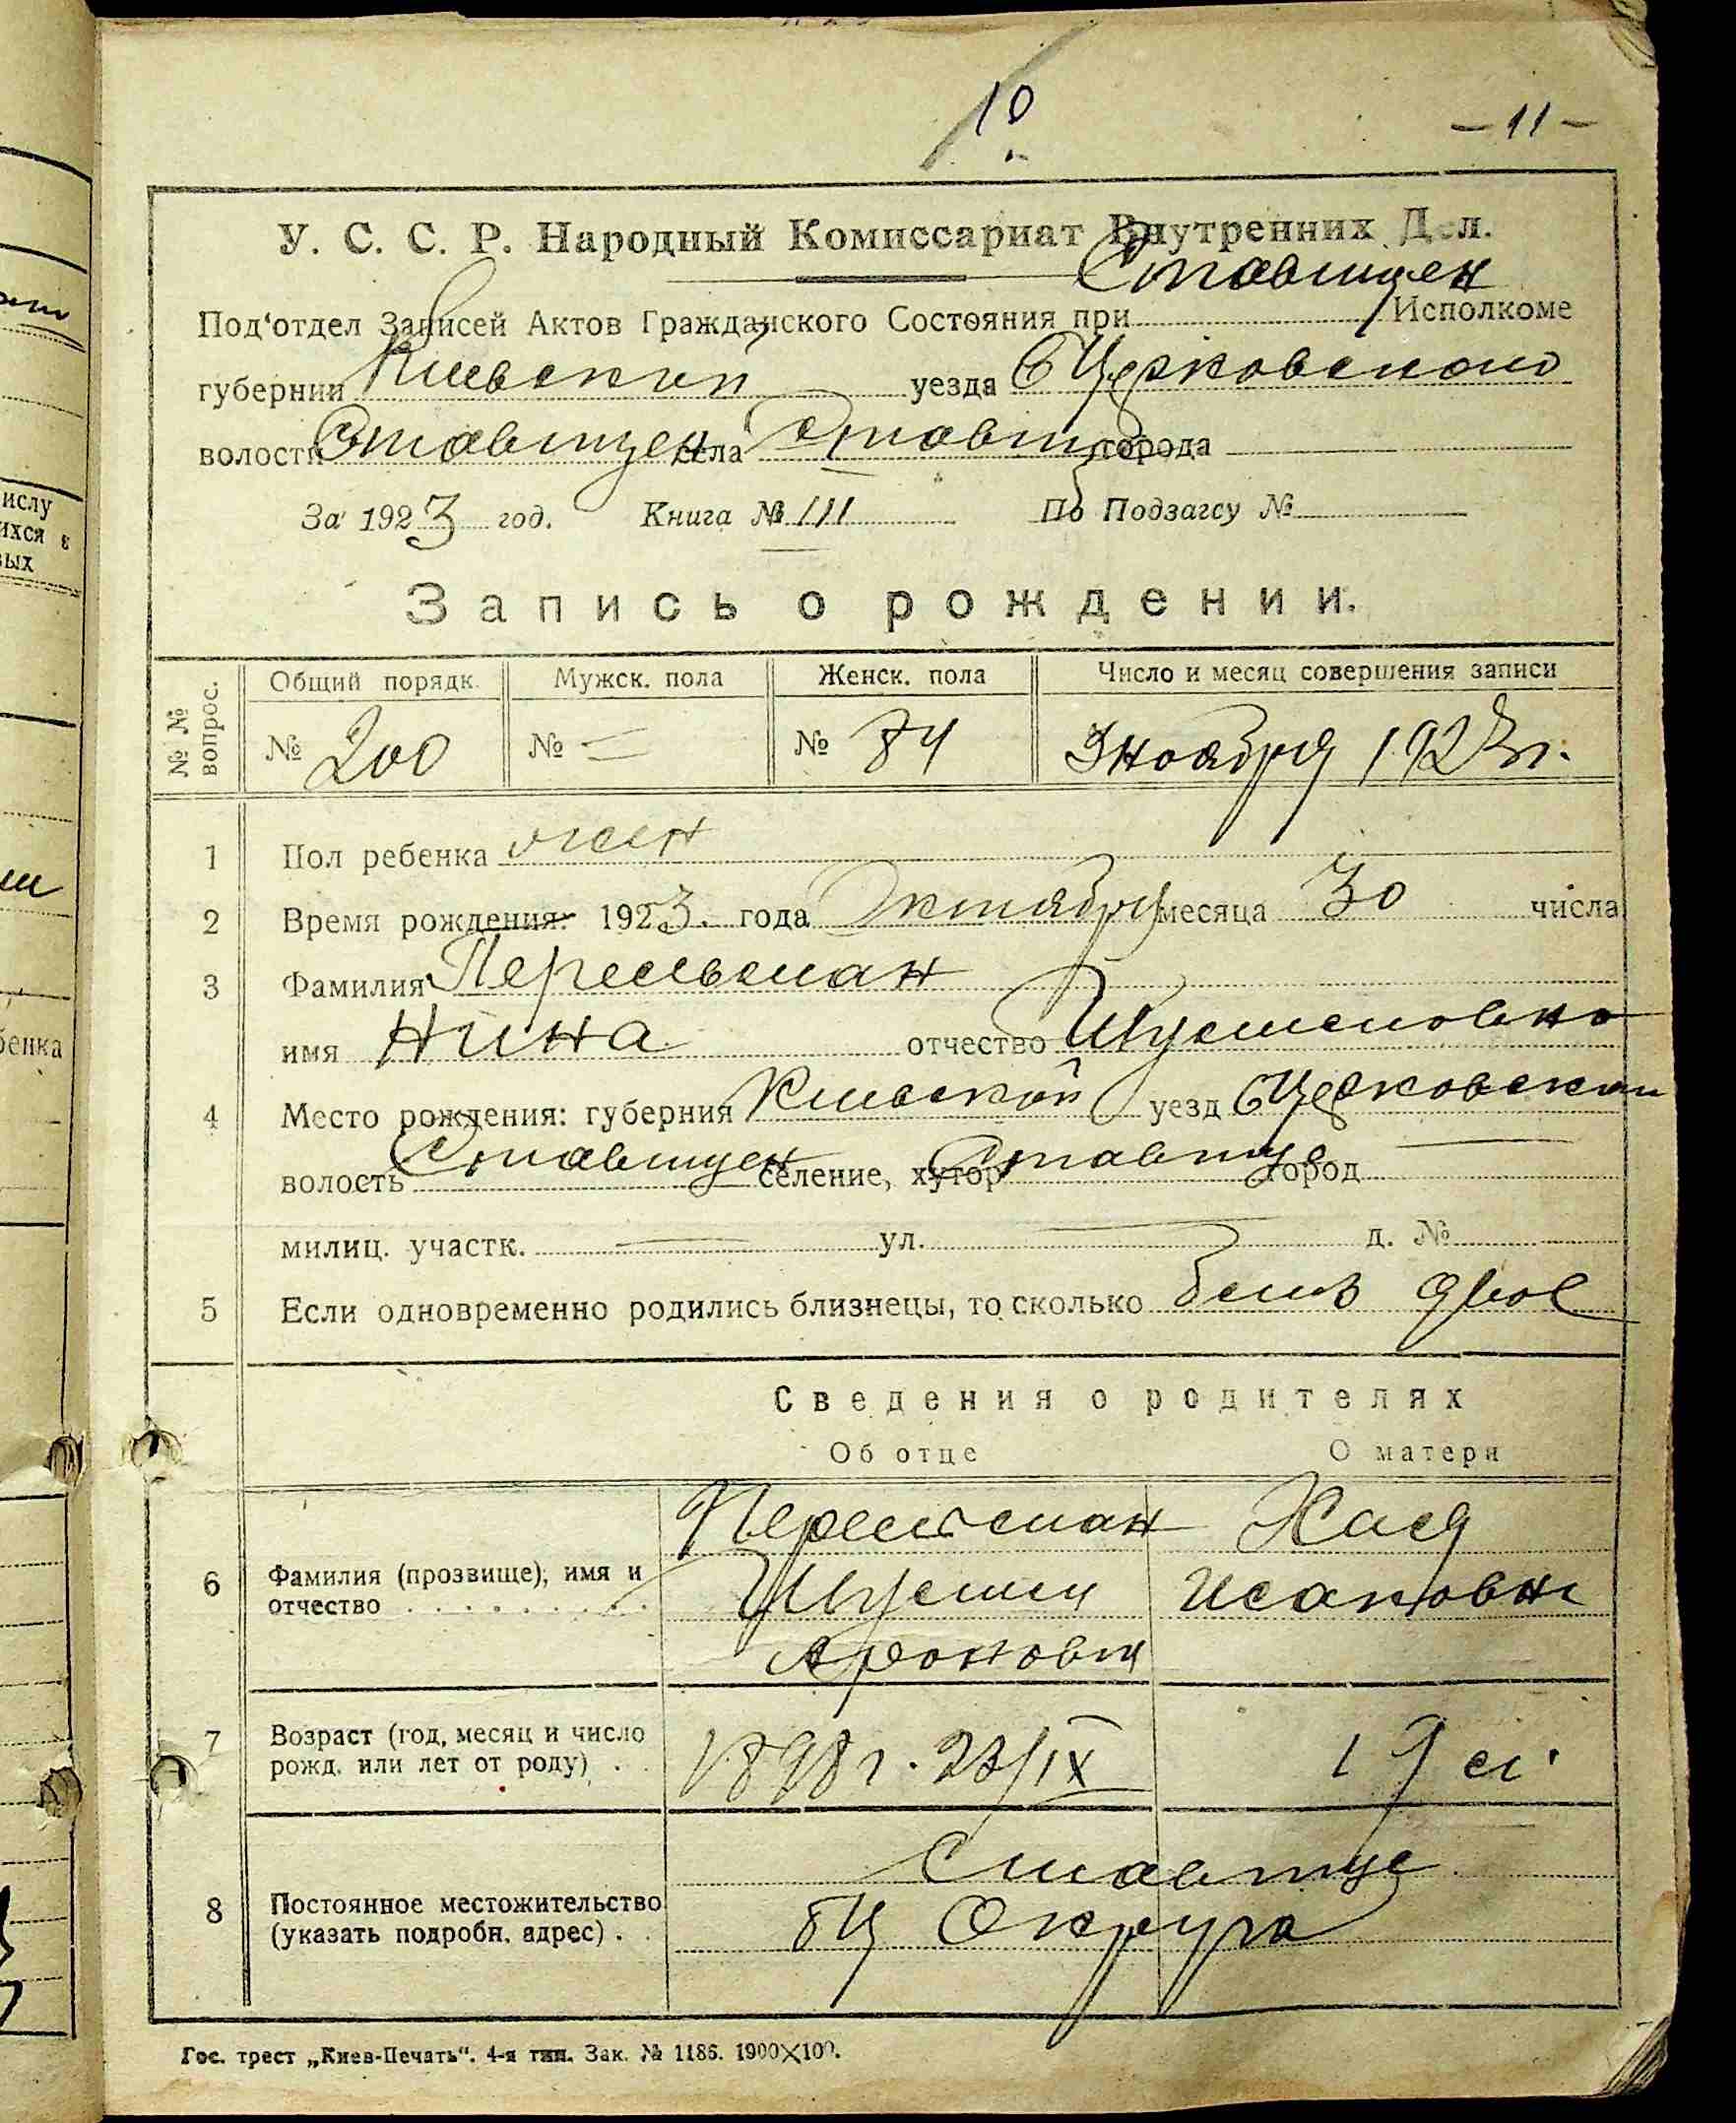 10
-11-
У. С. С. Р. Народный Комиссариат Внутренних Дел.
Ставищен
Под'отдел Записей Актов Гражданского Состояния при Исполкоме
губернии Киевский уезда БЦерковского
волости Ставищен села Ставищ города
За 1923 год. Книга № III По Подзагсу №
Запись о рождении.
№ № вопрос. Общий порядк. Мужск. пола Женск. пола Число и месяц совершения записи
№ 200 № = № 84 3 ноября 1923 г.
1 Пол ребенка жен
2 Время рождения: 1923. года Октября месяца 30 числа
3 Фамилия Перельман
имя Нина отчество
4 Место рождения: губерния Киевской уезд БЦерковскаи
волость Ставищен селение, хутор Ставище город
милиц. участк. ул. д. №
5 Если одновременно родились близнецы, то сколько двое
Сведения о родителях
Об отце О матери
Перельман Хася
6 Фамилия (прозвище), имя и отчество Исаковн
Аронович
7 Возраст (год, месяц и число рожд. или лет от роду) 1898 г. 23/IX 19 л.
Ставище
8 Постоянное местожительство (указать подробн. адрес) БЦ Округа
Гос. трест „Киев-Печать“. 4-я тип. Зак. № 1186. 1900×100.
ислу
ихся в
вых
бенка